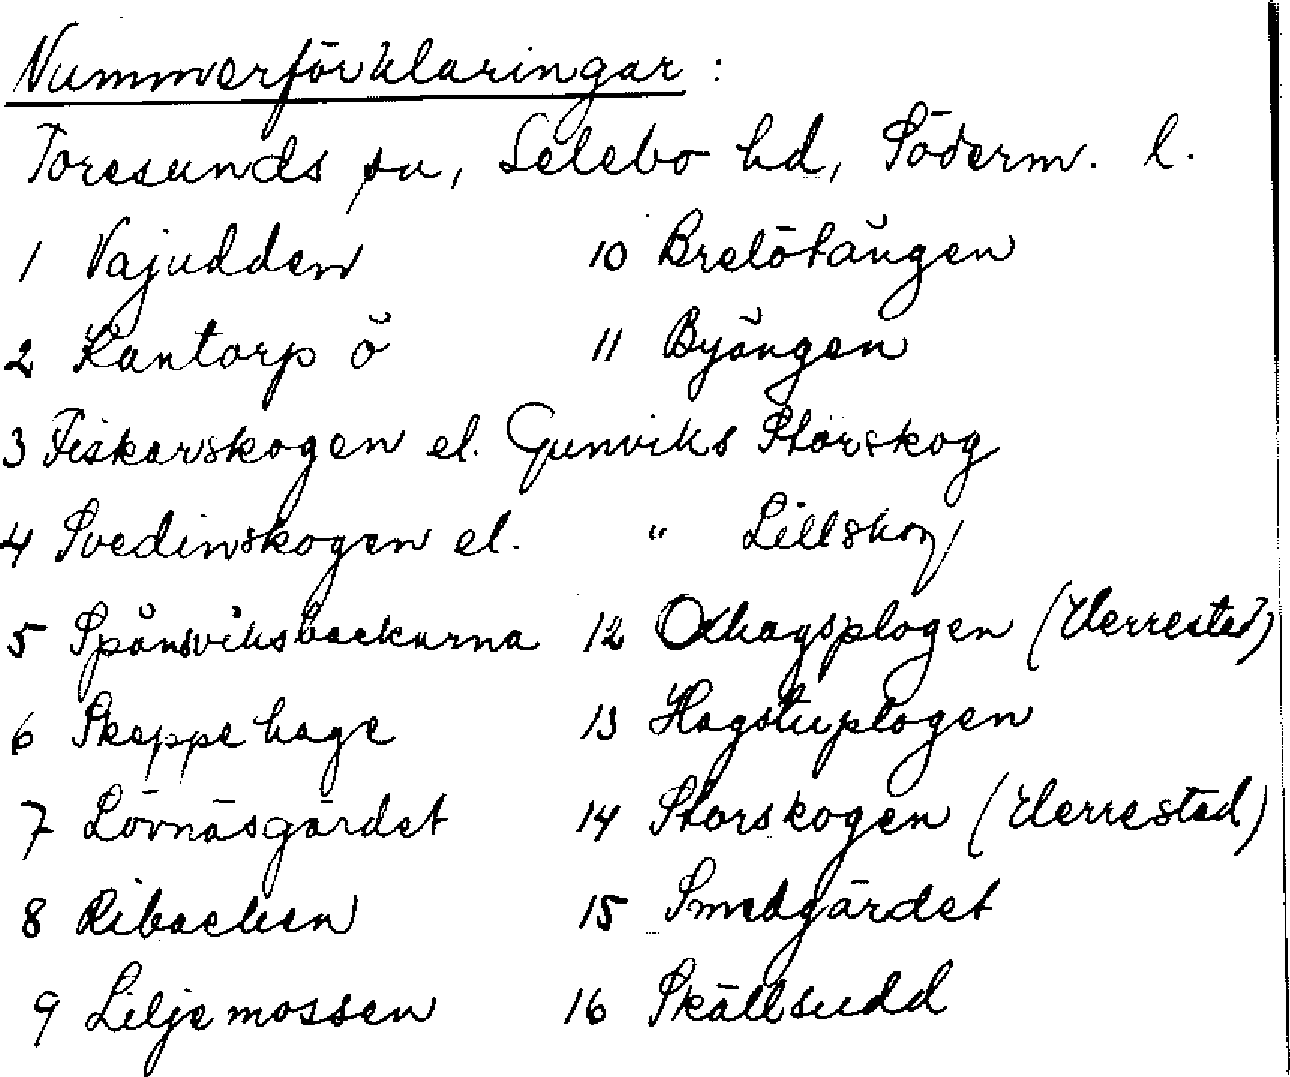 Nummerförklaringar :
Toresunds sn, Selebo hd, Söderm. l.
1 Vajudden 10 Brelötängen
2 Kantorp ö 11 Byängen
3 Fiskarskogen el. Gunviks Storskog
4 Svedinskogen el. " Lillskog
5 Spånsviksbackarna 12 Oxhagsplogen (Herrestad)
6 Skeppehage 13 Hagstuplogen
7 Lövnäsgärdet 14 Storskogen (Herrestad)
8 Ribacken 15 Smedgärdet
9 Liljemossen 16 Skällsudd